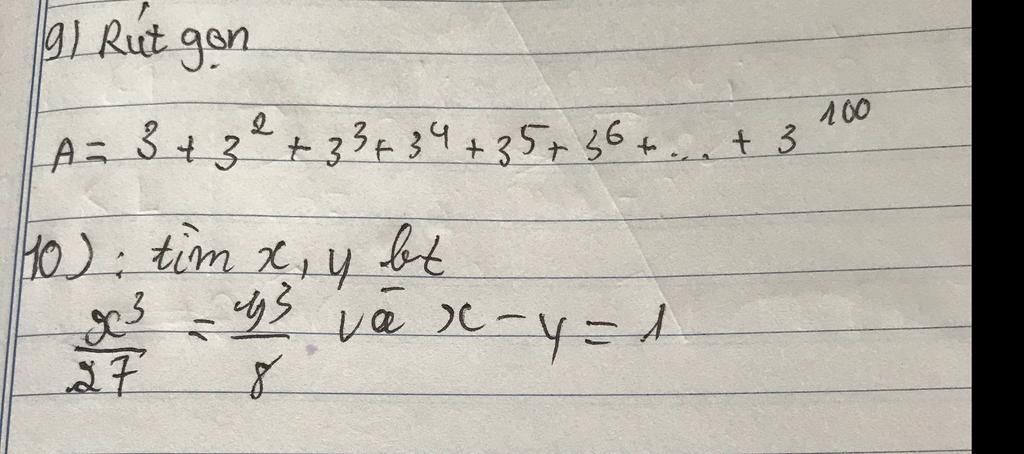 9) Rút gọn
A = 3 + 3² + 3³ + 3⁴ + 3⁵ + 3⁶ + ... + 3¹⁰⁰
10): tìm x, y bt
x³/27 = y³/8 và x - y = 1